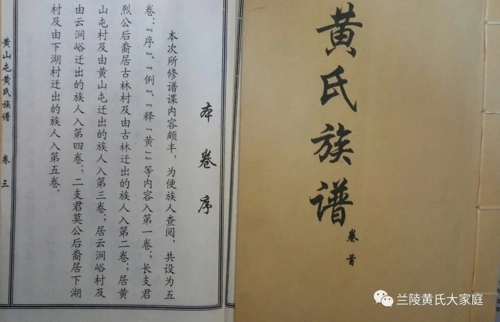 黄氏族谱
卷首
本卷序
本次所修谱谍内容颇丰，为便族人查阅，共设为五
卷：“序”、“例”、“释‘黄’”等内容入第一卷；长支君
烈公后裔居古林村及由古林迁出的族人入第二卷；居黄
山屯村及由黄山屯迁出的族人入第三卷；居云涧峪村及
由云涧峪迁出的族人入第四卷；二支君莫公后裔居下湖
村及由下湖村迁出的族人入第五卷。
黄山屯黄氏族谱 卷三
兰陵黄氏大家庭